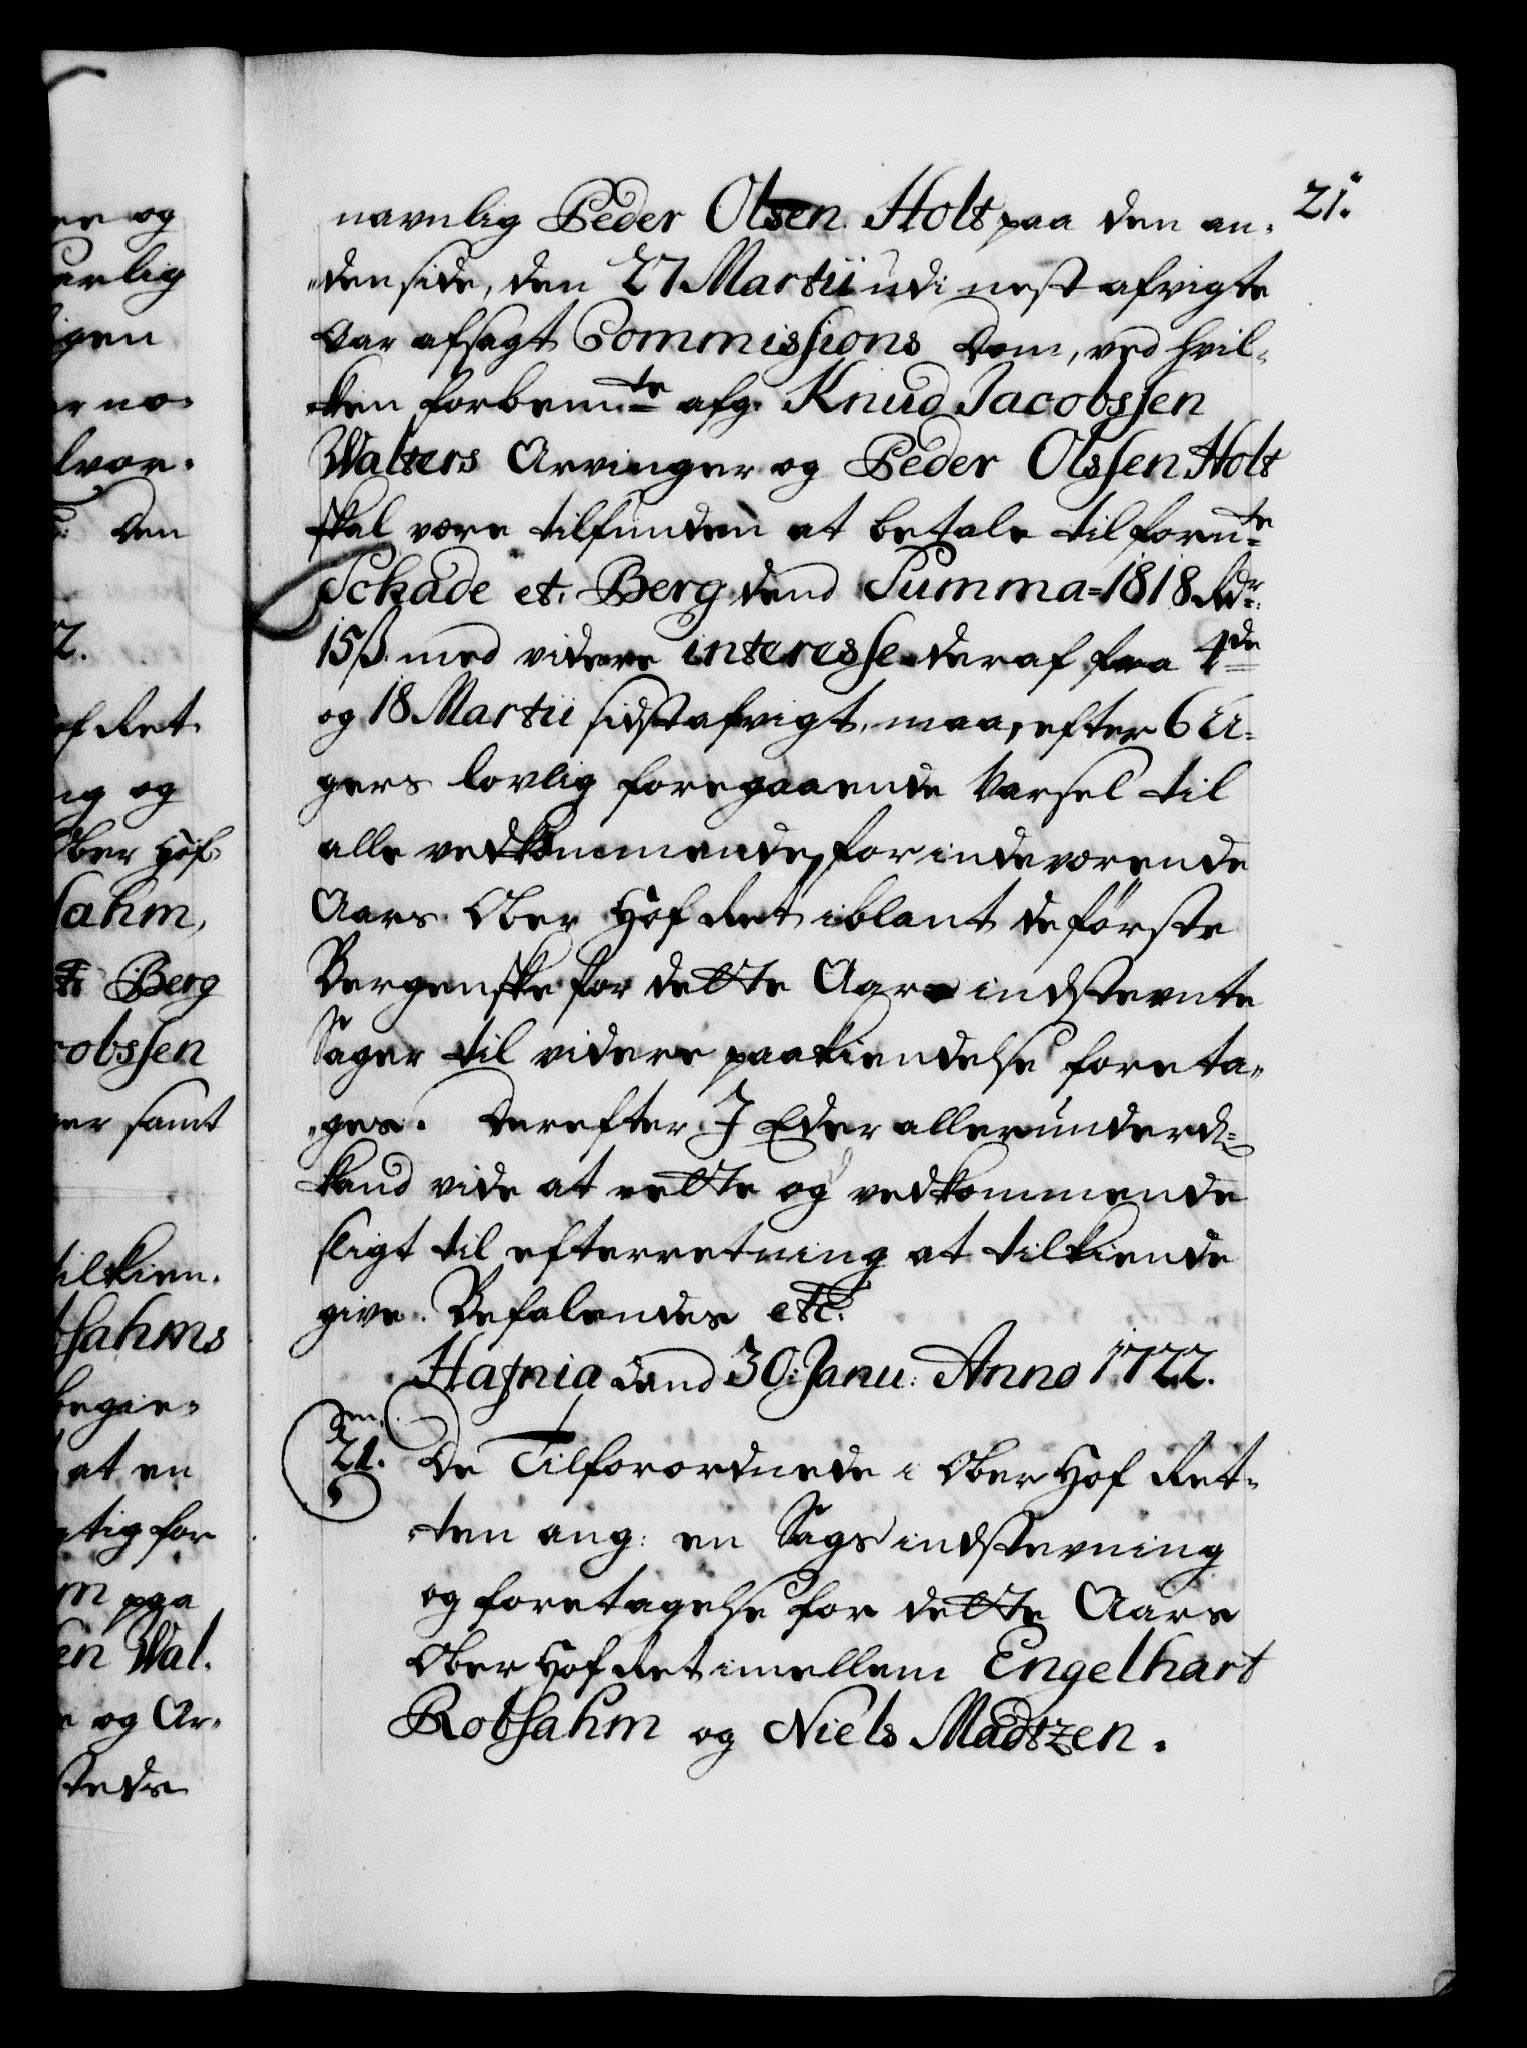 21.
navnlig Peder Olsen Holt paa den an-
denside, den 27 Martii udi nest afvigte
Aar afsagt Commissions Dom, ved hvil-
ken forbem.te afg. Knud Jacobssen
Walters Arvinger og Peder Olssen Holt
skal være tilfunden at betale til forn.te
Schade et. Berg dend Summa=1818 Rdr:
15ß. med videre interesse deraf fra 4de
og 18 Martii sidstafvigt, maa, efter 6 U-
gers lovlig foregaaende Varsel til
alle vedkommende, for indeværende
Aars Ober Hof Ret iblant de første
Bergenske for dette Aar indstevnte
Sager til videre paakiendelse foreta-
ges. Derefter I Eder allerunderd.
kand vide at rette og vedkommende
sligt til efterretning at tilkiende
give. Befalendes etc.
Hafnia dend 30: Janu: Anno 1722.
21.
De Tilforordnede i Ober Hof Ret-
ten ang: en Sags indstevning
og foretagelse for dette Aars
Ober Hof Ret imellem Engelhart
Robsahm og Niels Madtzen.
ee og
erlig
igen
er no-
lvor-
den
2.
of Ret
ng og
Ober Hof
sahm,
et. Berg
cobssen
ger samt
tilkien-
bsahms
begie-
at en
gtig for
m paa
en Wal-
e og Ar-
steds